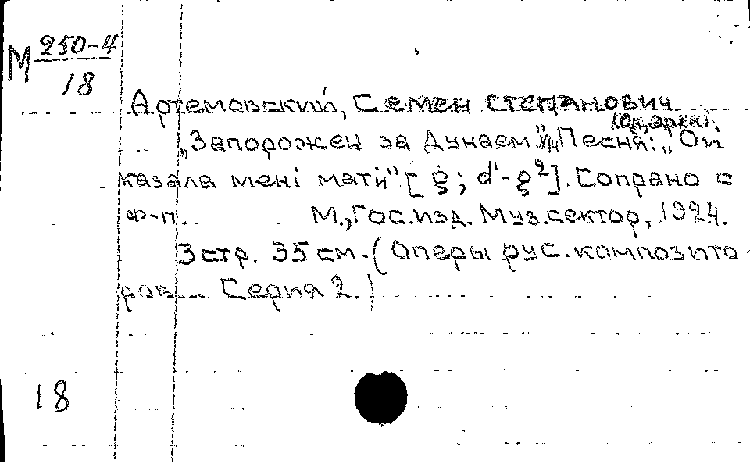 М 250-4
18
Артемовский, Семен Степанович
„Запорожец за Дунаем". Песня: „Ой
казала мені мати" [g; d'-g²]. Сопрано с
ф-п. М., Гос. изд. Муз. сектор, 1924.
3 стр. 35 см. (Оперы рус. композито-
ров... Серия 2.)
18